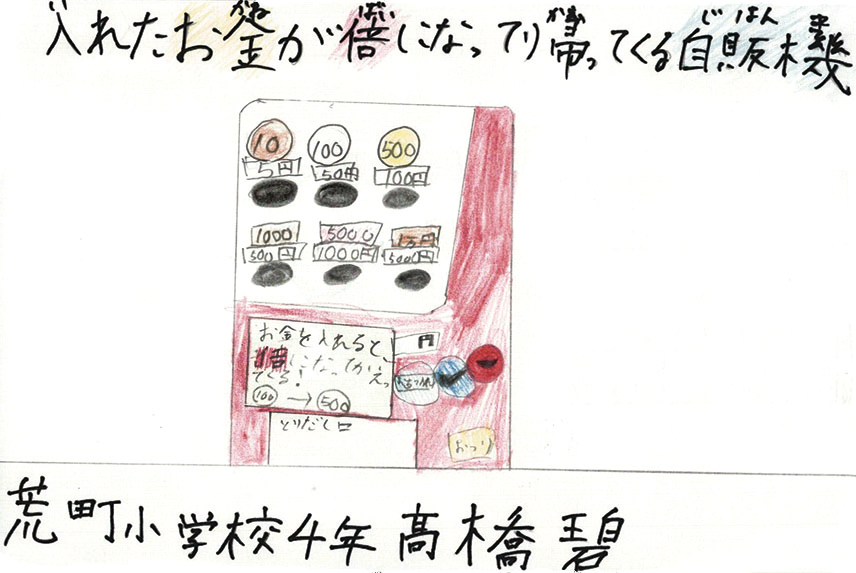 入れたお金が倍になってり帰ってくる自販機
かね ばい かえ じ はん
10 100 500
5円 50円 100円
1000 5000 1万円
500円 1000円 5000円
お金を入れると、
倍になってかえっ
てくる!
100 → 500
円
とりだし口
おつり
荒町小学校4年 高橋 碧